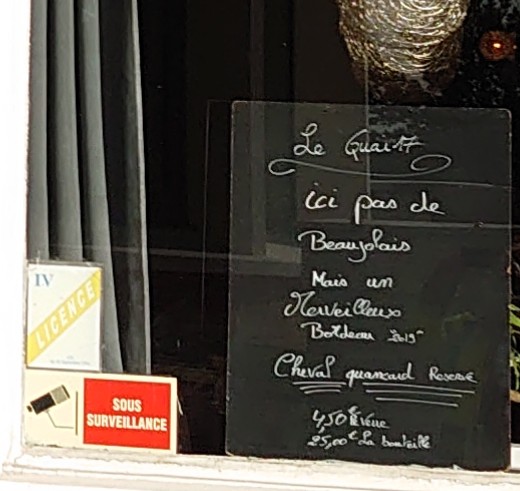 Le Quai 17
ici pas de
Beaujolais
Mais un
Merveilleux
Bordeaux 2015
Cheval quancard Reserve
4,50€ le verre
25,00€ La bouteille
IV
LICENCE
SOUS
SURVEILLANCE